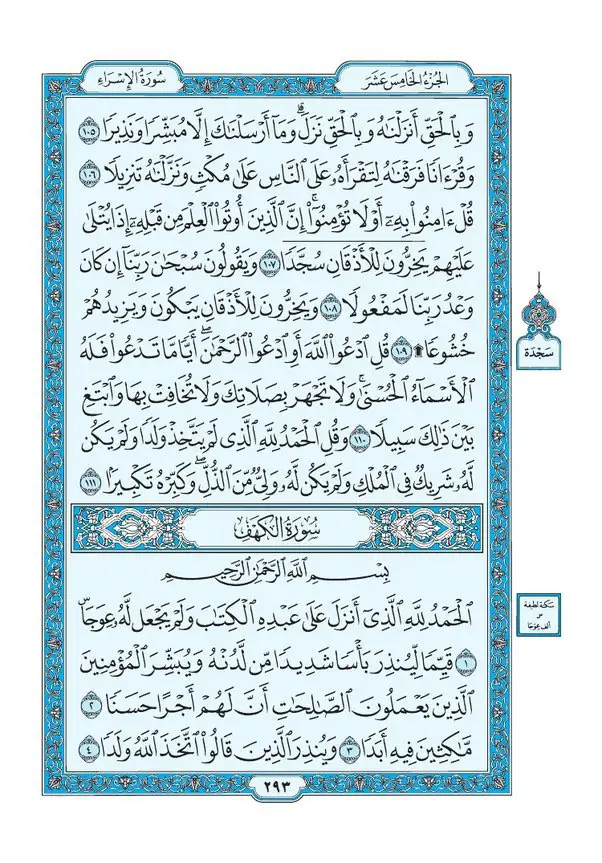 سُورَةُ الإِسْرَاءِ
الجُزْءُ الخَامِسَ عَشَرَ
وَبِالْحَقِّ أَنزَلْنَٰهُ وَبِالْحَقِّ نَزَلَ ۗ وَمَآ أَرْسَلْنَٰكَ إِلَّا مُبَشِّرًا وَنَذِيرًا ١٠٥
وَقُرْءَانًا فَرَقْنَٰهُ لِتَقْرَأَهُۥ عَلَى النَّاسِ عَلَىٰ مُكْثٍ وَنَزَّلْنَٰهُ تَنزِيلًا ١٠٦
قُلْ ءَامِنُوا۟ بِهِۦٓ أَوْ لَا تُؤْمِنُوٓا۟ ۚ إِنَّ الَّذِينَ أُوتُوا۟ الْعِلْمَ مِن قَبْلِهِۦٓ إِذَا يُتْلَىٰ
عَلَيْهِمْ يَخِرُّونَ لِلْأَذْقَانِ سُجَّدًا ١٠٧ وَيَقُولُونَ سُبْحَٰنَ رَبِّنَآ إِن كَانَ
وَعْدُ رَبِّنَا لَمَفْعُولًا ١٠٨ وَيَخِرُّونَ لِلْأَذْقَانِ يَبْكُونَ وَيَزِيدُهُمْ
خُشُوعًا ۩ ١٠٩ قُلِ ادْعُوا۟ اللَّهَ أَوِ ادْعُوا۟ الرَّحْمَٰنَ ۖ أَيًّا مَّا تَدْعُوا۟ فَلَهُ
الْأَسْمَآءُ الْحُسْنَىٰ ۚ وَلَا تَجْهَرْ بِصَلَاتِكَ وَلَا تُخَافِتْ بِهَا وَابْتَغِ
بَيْنَ ذَٰلِكَ سَبِيلًا ١١٠ وَقُلِ الْحَمْدُ لِلَّهِ الَّذِى لَمْ يَتَّخِذْ وَلَدًا وَلَمْ يَكُن
لَّهُۥ شَرِيكٌ فِى الْمُلْكِ وَلَمْ يَكُن لَّهُۥ وَلِىٌّ مِّنَ الذُّلِّ ۖ وَكَبِّرْهُ تَكْبِيرًا ١١١
سُورَةُ الْكَهْفِ
بِسْمِ اللَّهِ الرَّحْمَٰنِ الرَّحِيمِ
الْحَمْدُ لِلَّهِ الَّذِىٓ أَنزَلَ عَلَىٰ عَبْدِهِ الْكِتَٰبَ وَلَمْ يَجْعَل لَّهُۥ عِوَجَاۜ
١ قَيِّمًا لِّيُنذِرَ بَأْسًا شَدِيدًا مِّن لَّدُنْهُ وَيُبَشِّرَ الْمُؤْمِنِينَ
الَّذِينَ يَعْمَلُونَ الصَّٰلِحَٰتِ أَنَّ لَهُمْ أَجْرًا حَسَنًا ٢
مَّٰكِثِينَ فِيهِ أَبَدًا ٣ وَيُنذِرَ الَّذِينَ قَالُوا۟ اتَّخَذَ اللَّهُ وَلَدًا ٤
٢٩٣
سَجْدَة
سكتة لطيفة
على
ألف عِوَجَا